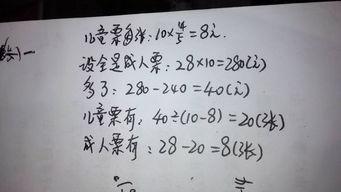 儿童票每张：10×4/5=8元.
设全是成人票：28×10=280(元)
多了：280-240=40(元)
儿童票有：40÷(10-8)=20(张)
成人票有：28-20=8(张)